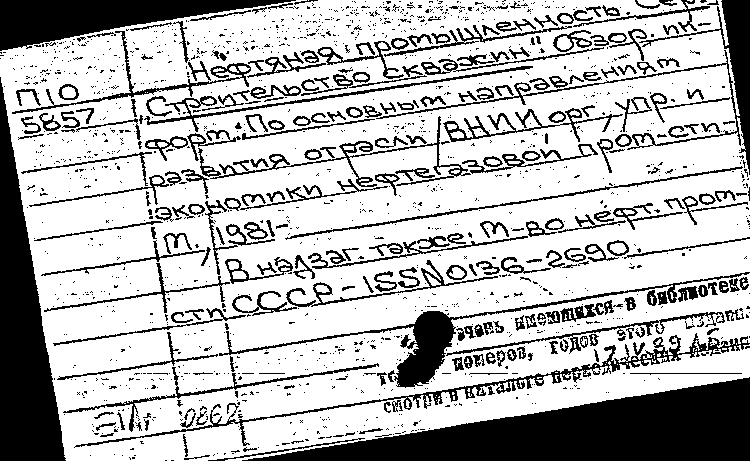 Нефтяная промышленность. Сер.
П10
"Строительство скважин" Обзор. ин-
5857
форм.: По основным направлениям
развития отрасли / ВНИИ орг., упр. и
экономики нефтегазовой пром-сти.-
М., 1981-
В надзаг. также: М-во нефт. пром-
сти СССР.- ISSN 0136-2690.
имеющихся в библиотеке
номеров, годов этого издания
17.IV.89
смотри в каталоге периодических изданий
0862